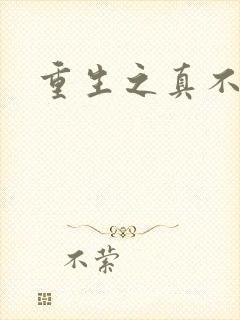 重生之真不
不萦